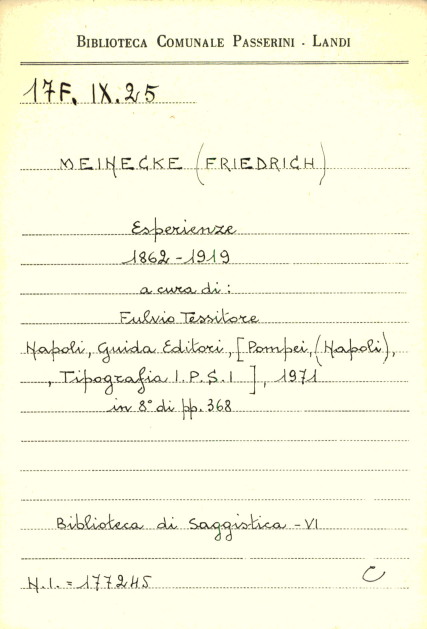 BIBLIOTECA COMUNALE PASSERINI - LANDI
17F. IX. 25
MEINECKE (FRIEDRICH)
Esperienze
1862-1919
a cura di:
Fulvio Tessitore
Napoli, Guida Editori, [Pompei, (Napoli),
, Tipografia I.P.S.I ], 1971
in 8° di pp. 368
Biblioteca di Saggistica - VI
N.I. = 177245
C